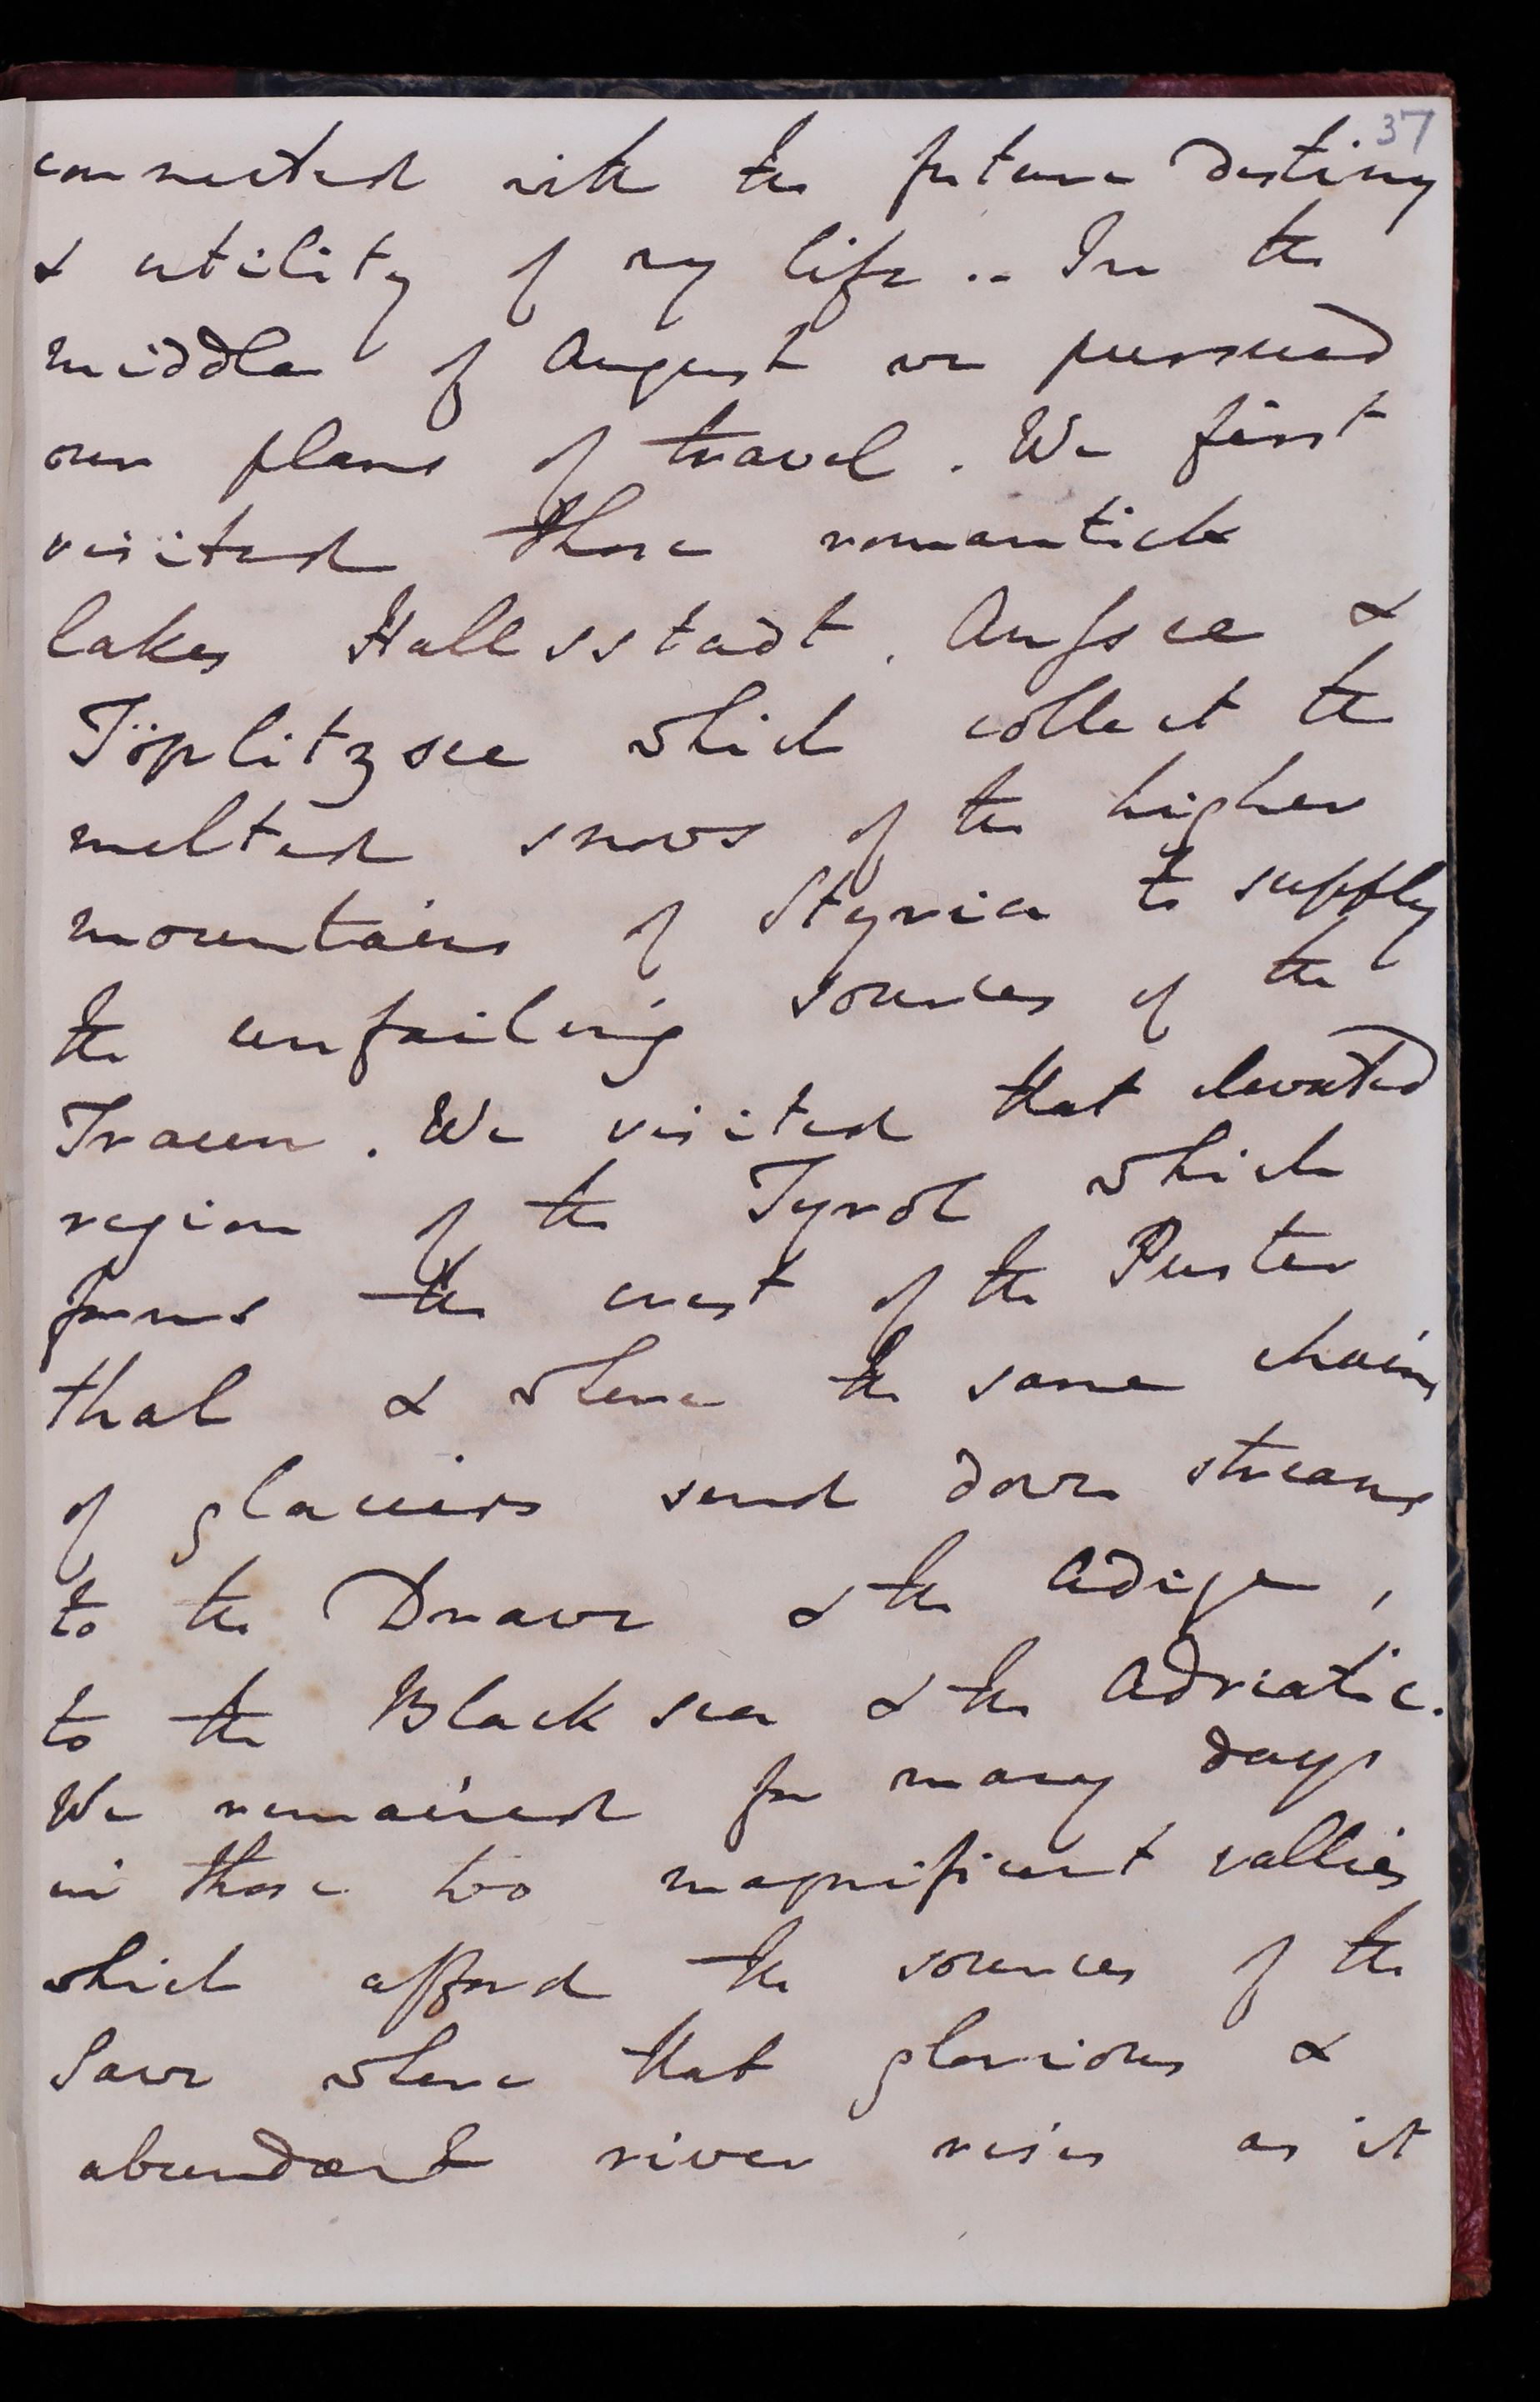 37
connected with the future destiny
& utility of my life .. In the
middle of August we pursued
our plans of travel. We first
visited those romantick
lakes Hallsstadt, Aufsee &
Töplitzsee which collect the
melted snows of the higher
mountains of Styria to supply
the unfailing sources of the
Traun. We visited that elevated
region of the Tyrol which
forms the crest of the Puster
thal & where the same chain
of glaciers send down streams
to the Drave & the Adige,
to the Black sea & the Adriatic.
We remained for many days
in those two magnificent vallies
which afford the sources of the
Save where that glorious &
abundant river rises as it